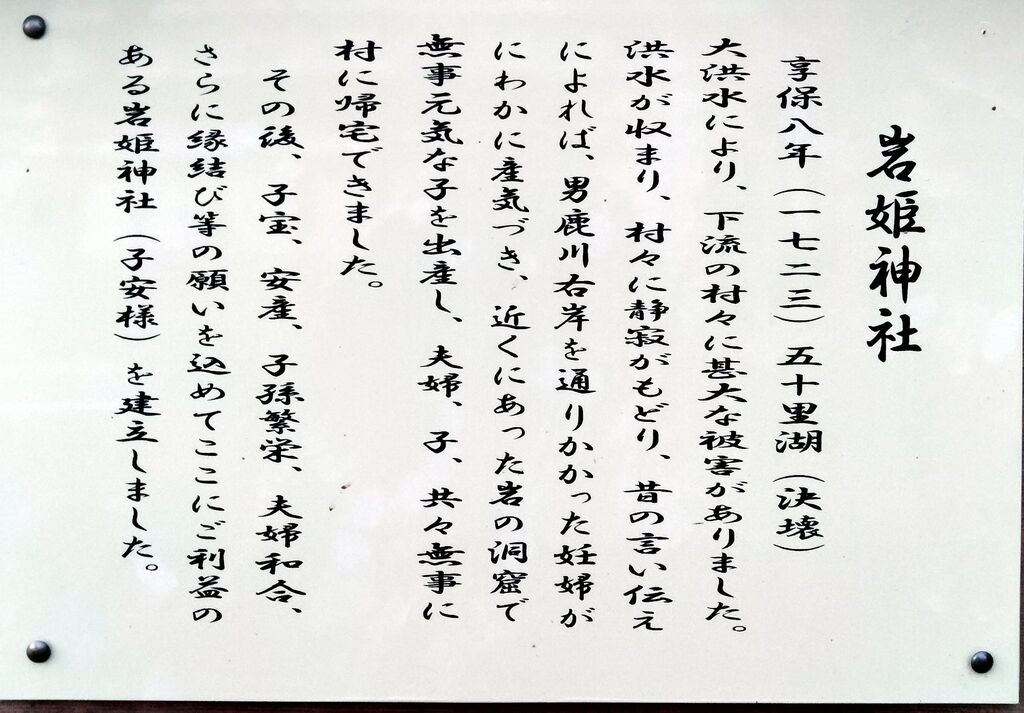 岩姫神社
享保八年(一七二三)五十里湖(決壊)
大洪水により、下流の村々に甚大な被害がありました。
洪水が収まり、村々に静寂がもどり、昔の言い伝え
によれば、男鹿川右岸を通りかかった妊婦が
にわかに産気づき、近くにあった岩の洞窟で
無事元気な子を出産し、夫婦、子、共々無事に
村に帰宅できました。
その後、子宝、安産、子孫繁栄、夫婦和合、
さらに縁結び等の願いを込めてここにご利益の
ある岩姫神社(子安様)を建立しました。